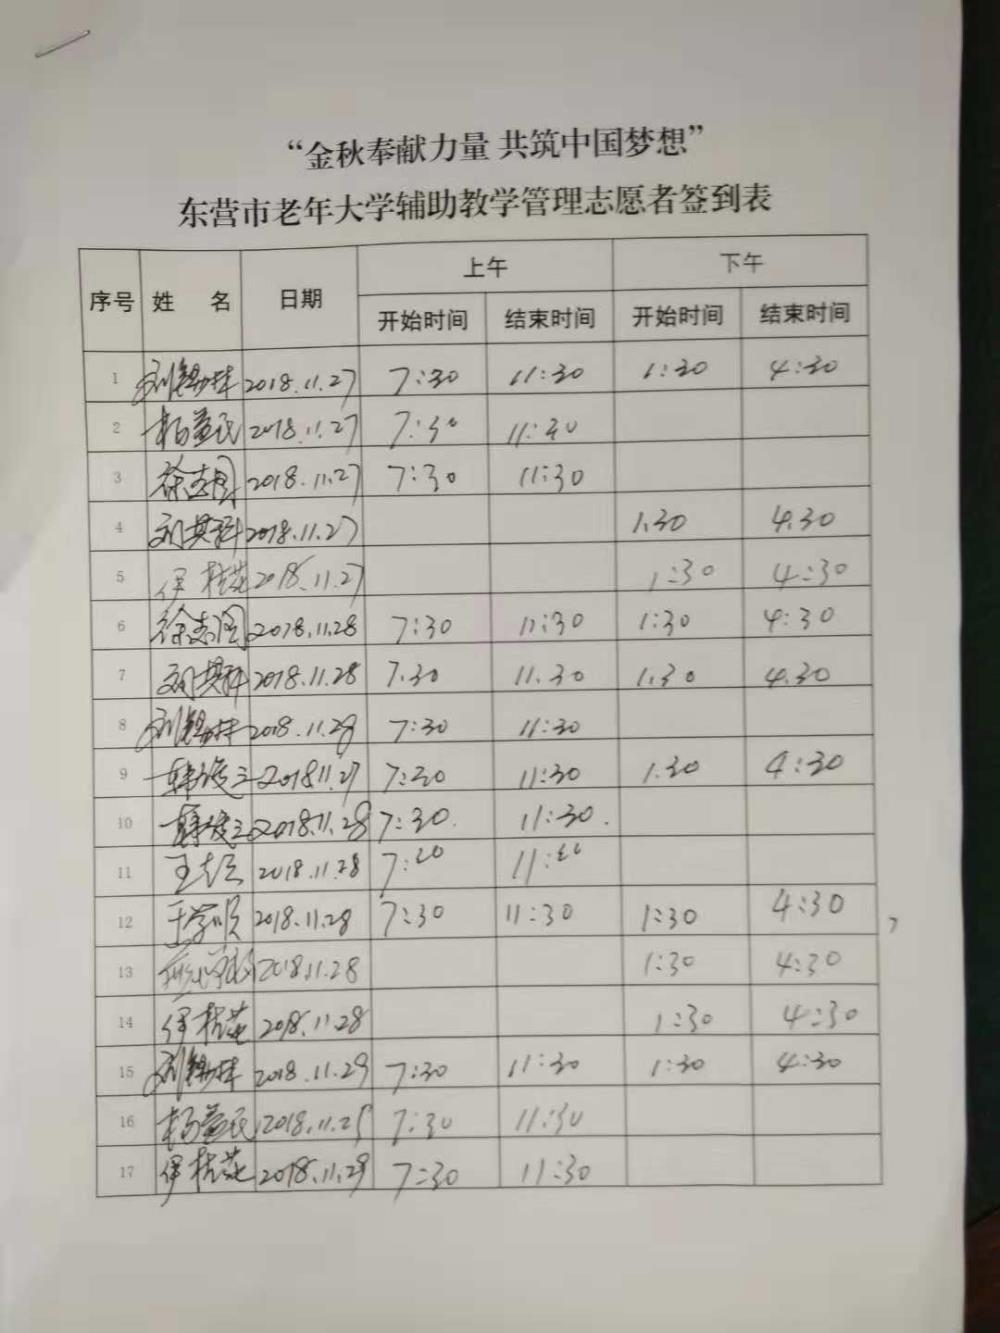 “金秋奉献力量 共筑中国梦想”
东营市老年大学辅助教学管理志愿者签到表
序号 姓 名 日期 上午 下午
开始时间 结束时间 开始时间 结束时间
1 2018.11.27 7:30 11:30 1:30 4:30
2 杨益民 2018.11.27 7:30 11:30
3 徐志国 2018.11.27 7:30 11:30
4 刘其科 2018.11.27 1.30 4.30
5 伊桂花 2018.11.27 1:30 4:30
6 徐志国 2018.11.28 7:30 11:30 1:30 4:30
7 刘其科 2018.11.28 7.30 11.30 1.30 4.30
8 2018.11.28 7:30 11:30
9 韩俊三 2018 11.27 7:30 11:30 1:30 4:30
10 韩俊三 2018.11.28 7:30. 11:30.
11 2018.11.28
12 2018.11.28 7:30 11:30 1:30 4:30
13 2018.11.28 1:30 4:30
14 伊桂花 2018.11.28 1:30 4:30
15 2018.11.29 7:30 11:30 1:30 4:30
16 杨益民 7:30 11:30
17 伊桂花 2018.11.29 7:30 11:30